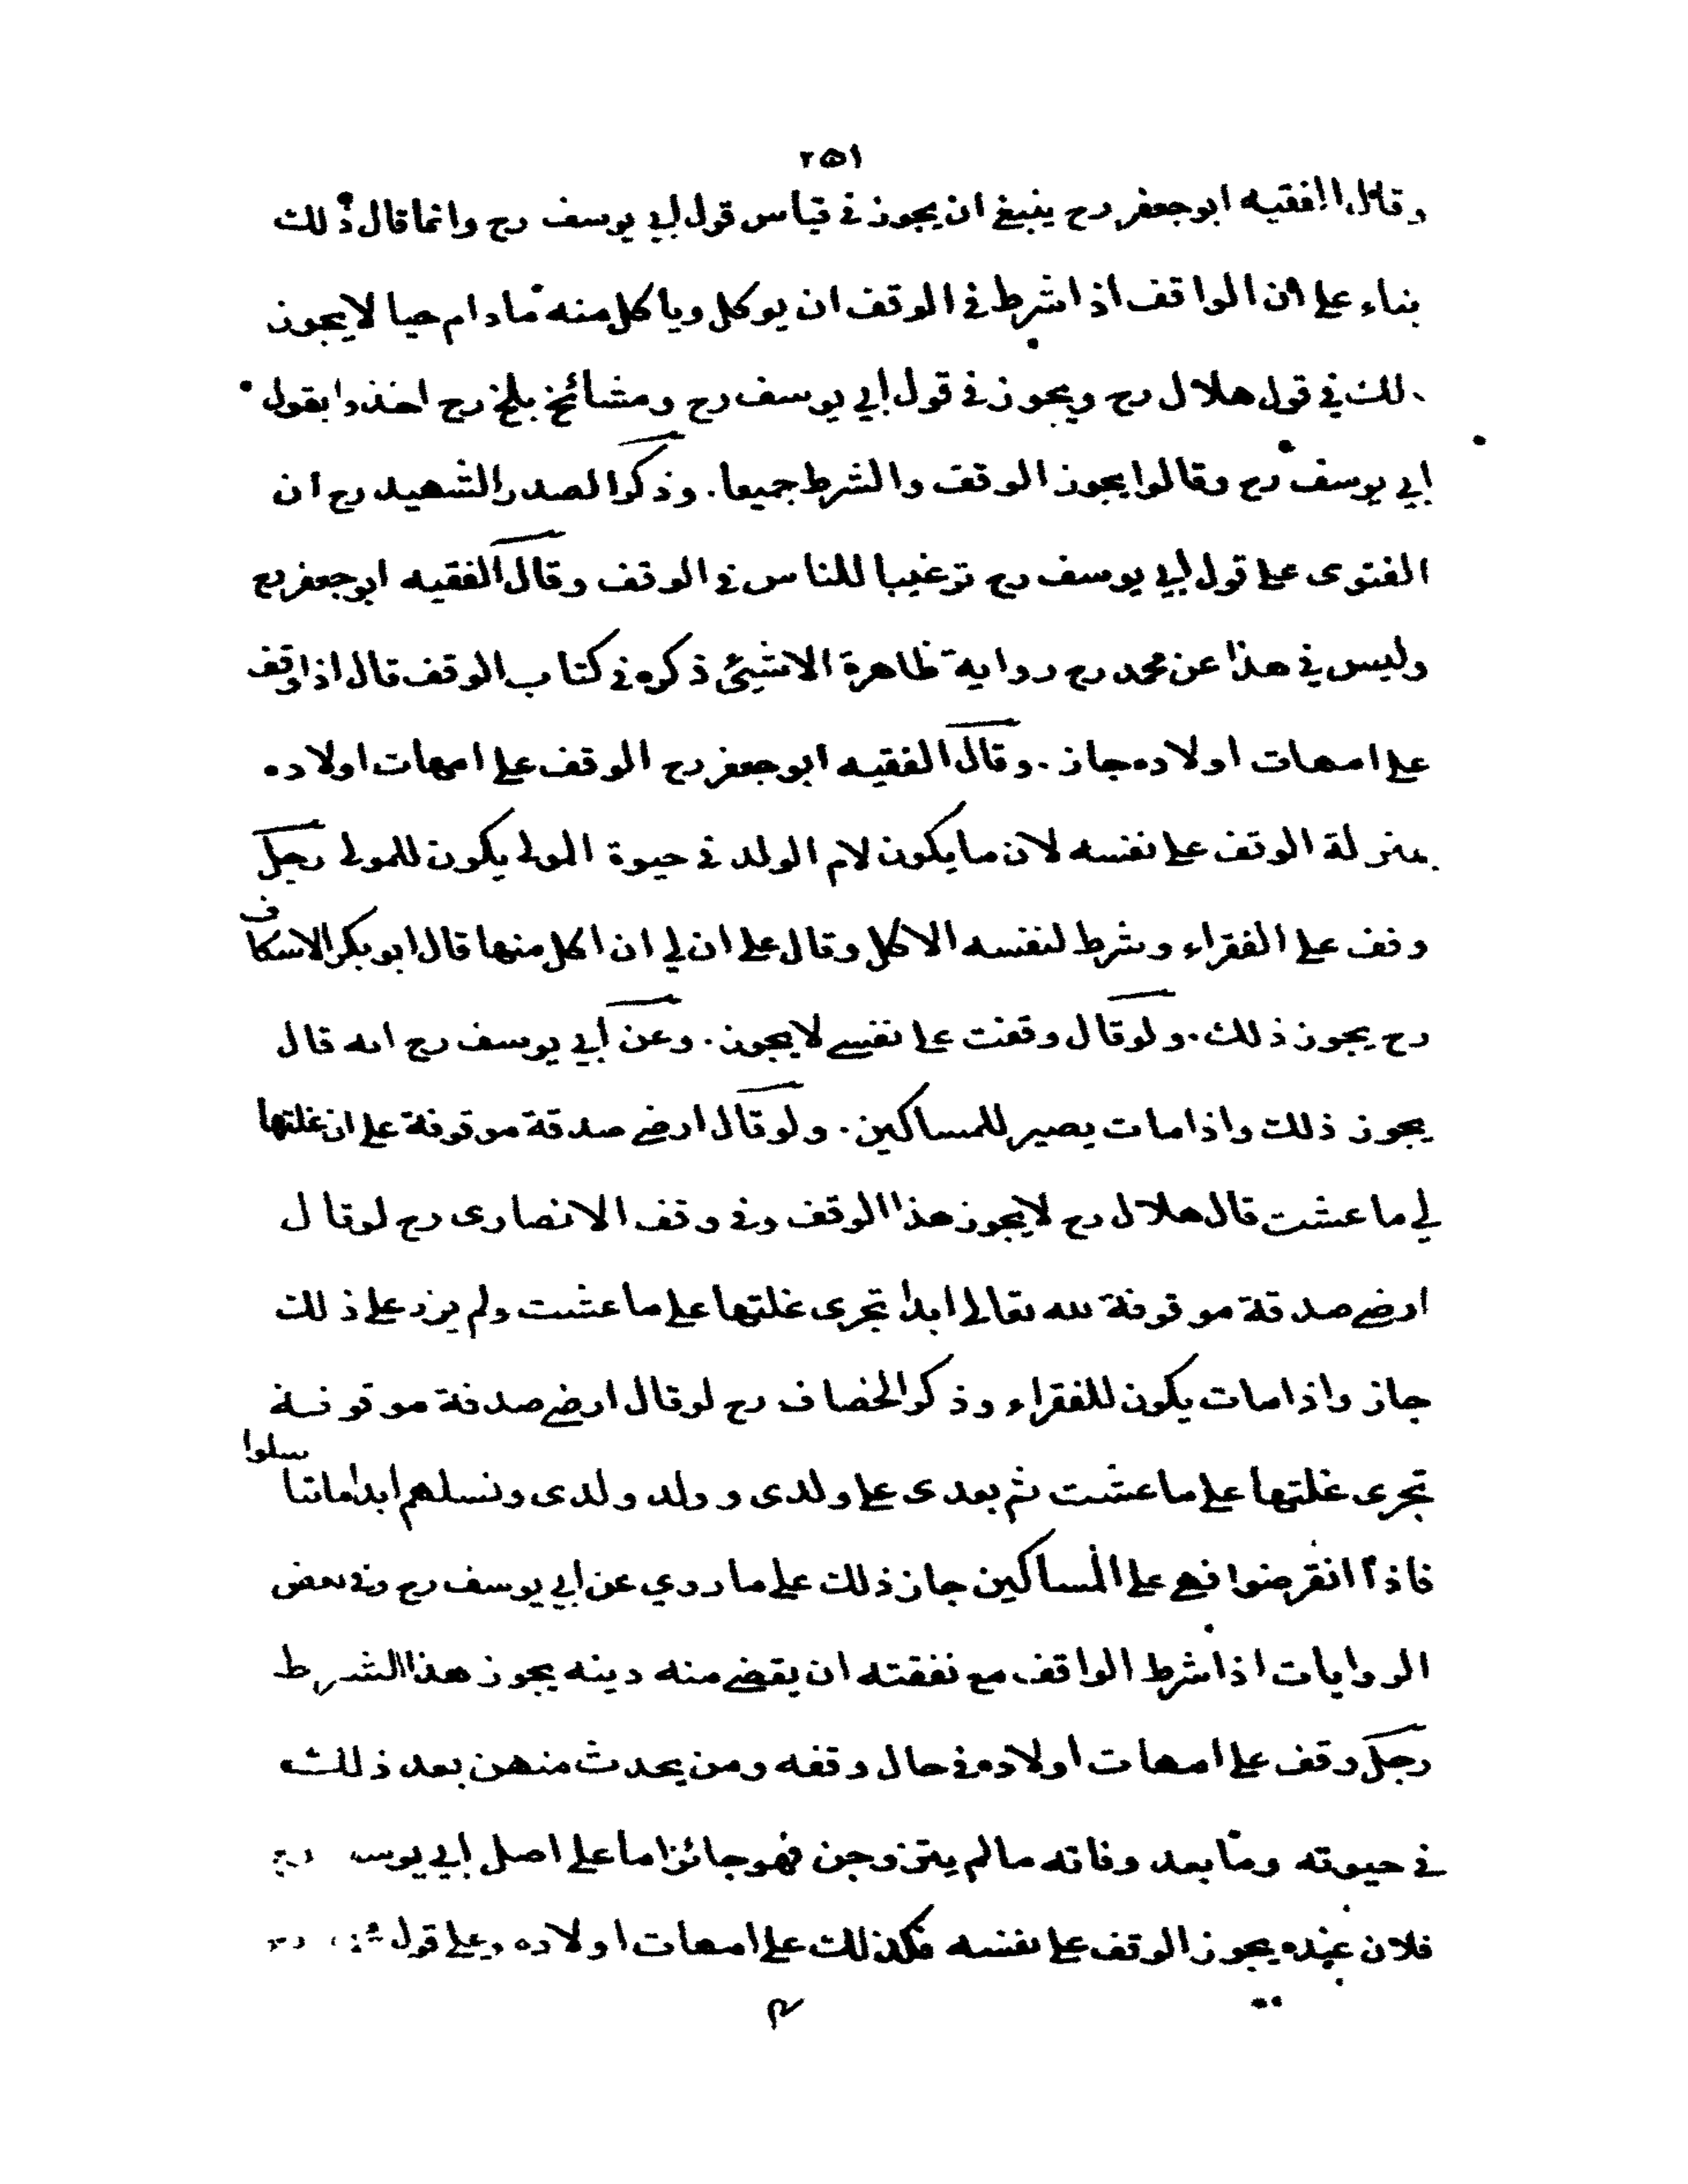 ٢٥١
وقال الفقيه ابوجعفر رح ينبغي ان يجوز في قياس قول ابي يوسف رح وانما قال ذلك
بناء على ان الواقف اذا شرط في الوقف ان يوكل وياكل منه ما دام حيا لا يجوز
ذلك في قول هلال رح ويجوز في قول ابي يوسف رح ومشائخ بلخ رح اخذوا بقول
ابي يوسف رح وقالوا يجوز الوقف والشرط جميعا. وذكر الصدر الشهيد رح ان
الفتوى على قول ابي يوسف رح ترغيبا للناس في الوقف وقال الفقيه ابوجعفر رح
وليس في هذا عن محمد رح رواية ظاهرة الا شئ ذكره في كتاب الوقف قال اذا وقف
على امهات اولاده جاز. وقال الفقيه ابوجعفر رح الوقف على امهات اولاده
بمنزلة الوقف على نفسه لان ما يكون لام الولد في حيوة المولى يكون للمولى رجل
وقف على الفقراء وشرط لنفسه الاكل وقال على ان لي ان اكل منها قال ابوبكر الاسكاف
رح يجوز ذلك. ولو قال وقفت على نفسي لا يجوز. وعن ابي يوسف رح انه قال
يجوز ذلك واذا مات يصير للمساكين. ولو قال ارضي صدقة موقوفة على ان غلتها
لي ما عشت قال هلال رح لا يجوز هذا الوقف وفي وقف الانصارى رح لو قال
ارضي صدقة موقوفة لله تعالى ابدا تجرى غلتها على ما عشت ولم يزد على ذلك
جاز واذا مات يكون للفقراء وذكر الخصاف رح لو قال ارضي صدقة موقوفة
تجرى غلتها على ما عشت ثم بعدى على ولدى وولد ولدى ونسلهم ابدا ما تناسلوا
فاذا انقرضوا فهي على المساكين جاز ذلك على ما روي عن ابي يوسف رح وفي بعض
الروايات اذا شرط الواقف مع نفقته ان يقضي منه دينه يجوز هذا الشرط
رجل وقف على امهات اولاده في حال وقفه ومن يحدث منهن بعد ذلك
في حيوته وما بعد وفاته ما لم يتزوجن فهو جائز اما على اصل ابي يوسف رح
فلان عنده يجوز الوقف على نفسه فكذلك على امهات اولاده وعلى قول